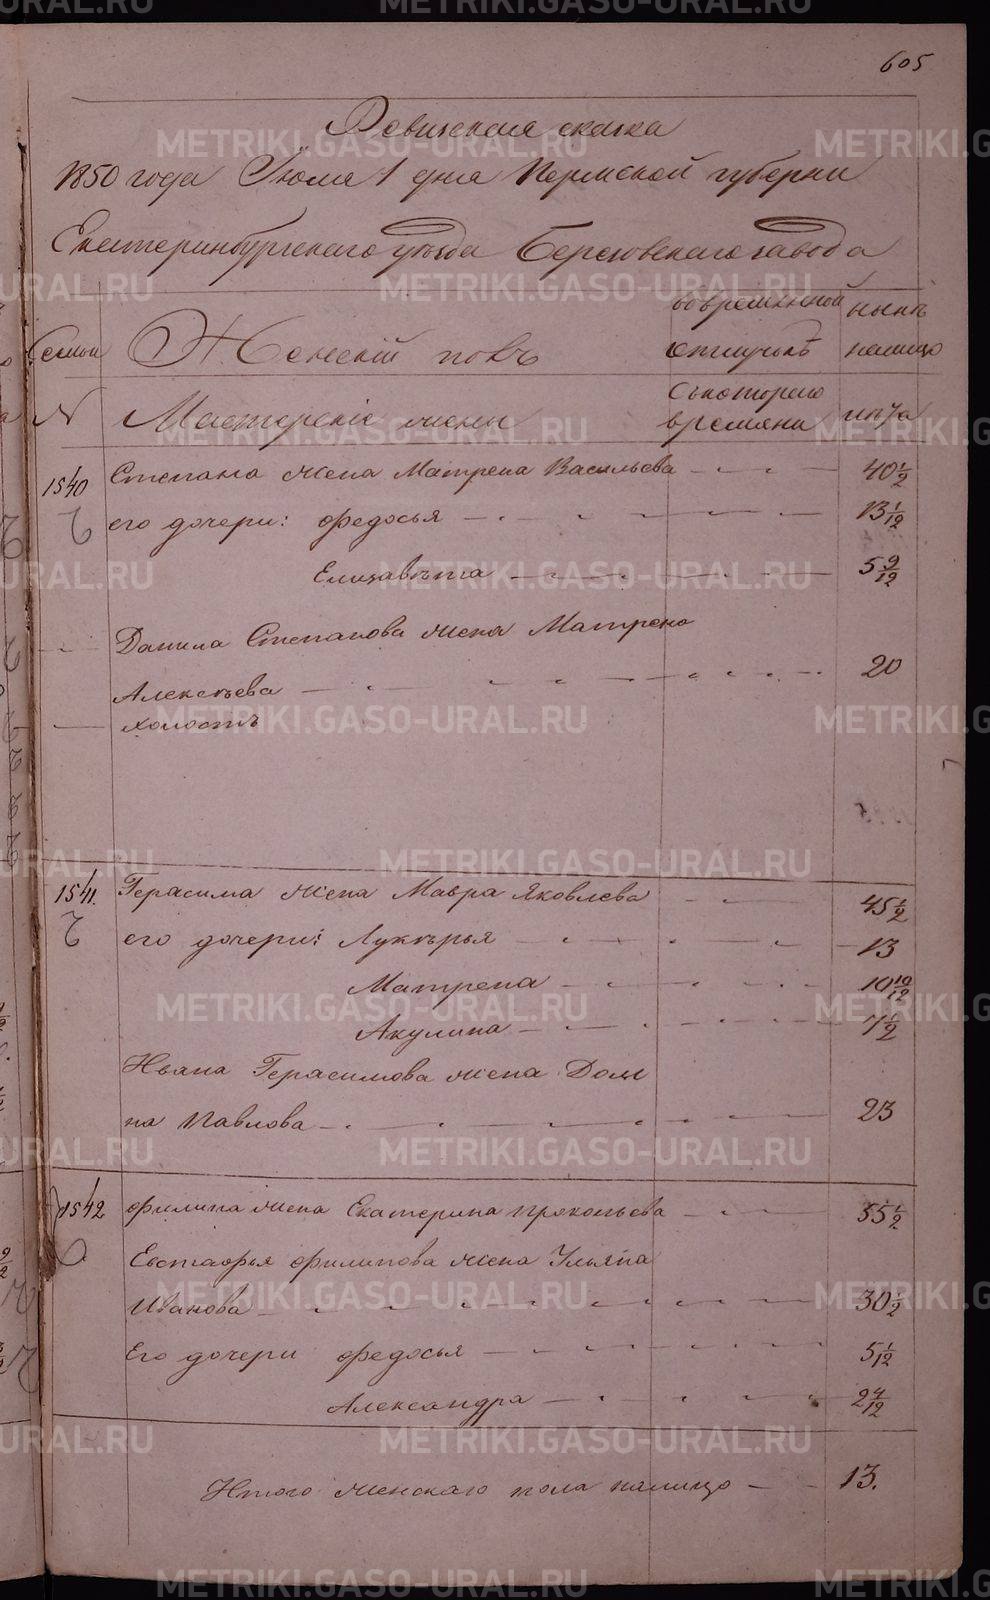 605
Ревизская сказка
1850 года Июля 1 дня Пермской губернии
Екатеринбургского уезда Березовского завода
Семьи Женскій полъ вовременной отлучкѣ нынѣ налицо
№ Мастерскіе жены Съкоторого времяни лѣта
1540 Степана жена Матрена Васильева 40 1/2
его дочери: Федосья 13 1/12
Елизавѣта 5 9/12
Данила Степанова жена Матрена
Алексѣева 20
холостъ
1541. Герасима жена Мавра Яковлева 45 1/2
его дочери: Лукѣрья 13
Матрена 10 10/12
Акулина 7 1/2
Ивана Герасимова жена Дом
на Павлова 23
1542 Филипа жена Екатерина Прокопьева 55 1/2
Евстафья Филипова жена Ульяна
Иванова 30 1/2
Его дочери Федосья 5 1/12
Александра 2 4/12
Итого женскаго пола налицо 13.
METRIKI.GASO-URAL.RU